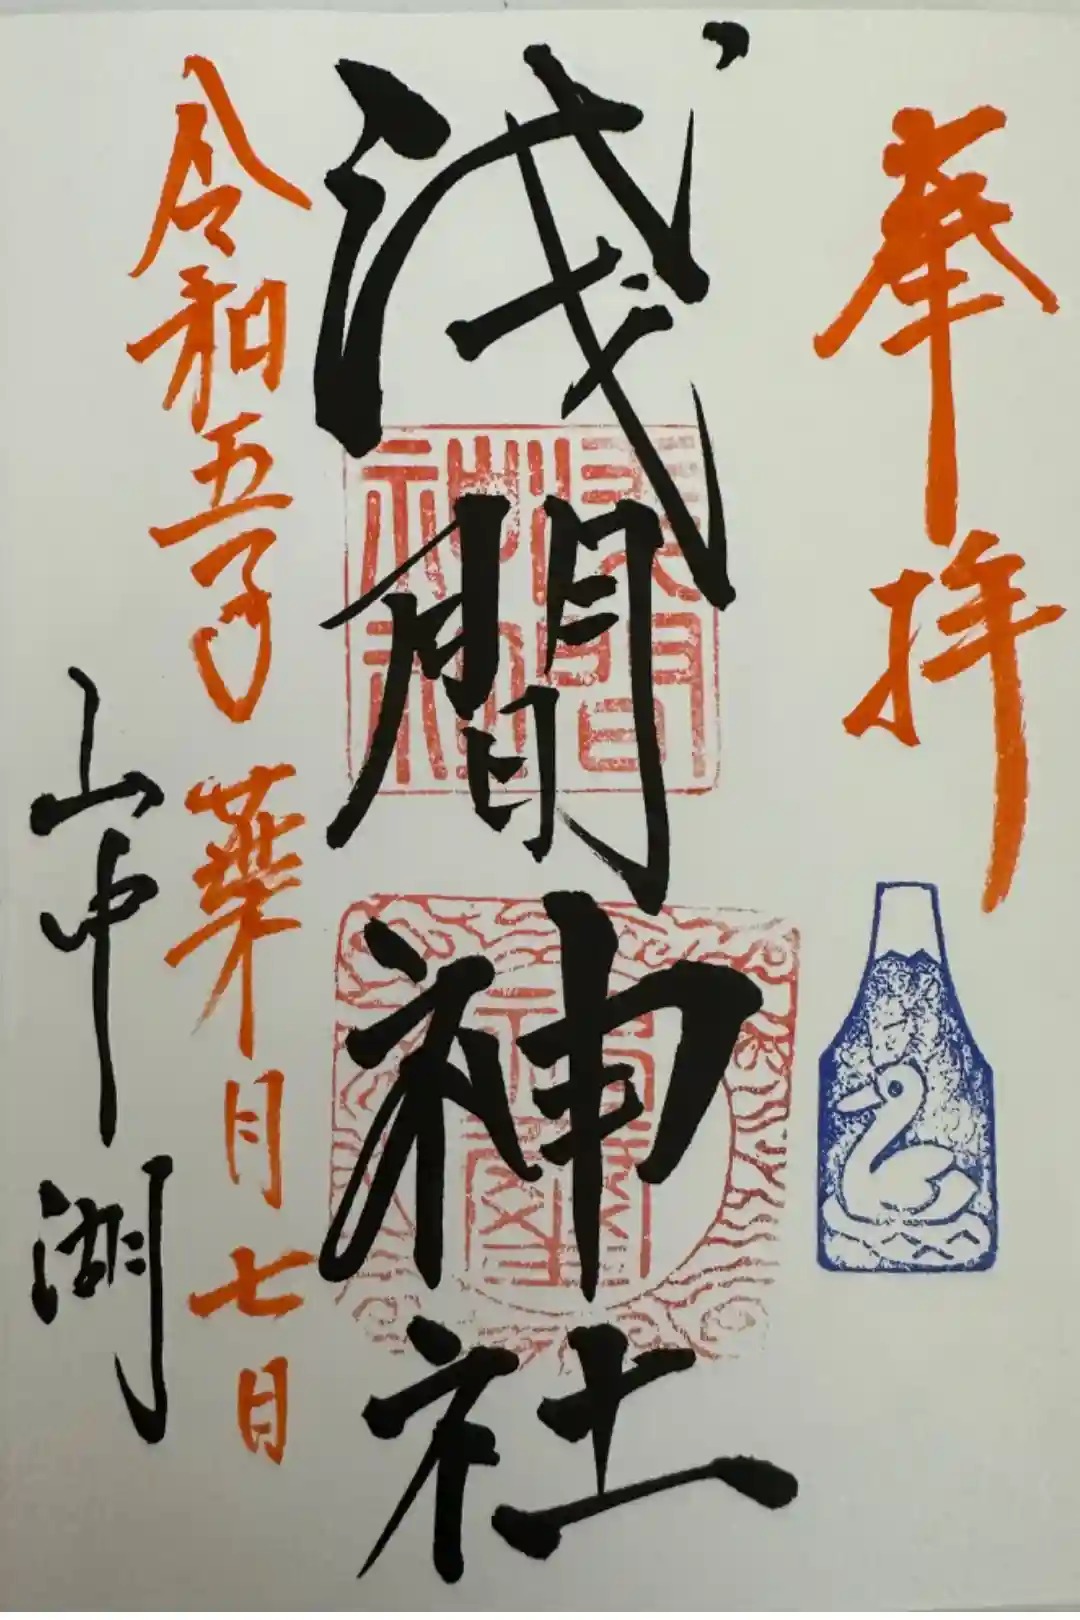 奉拝
淺間神社
令和五年 葉月七日
山中湖
淺間神社